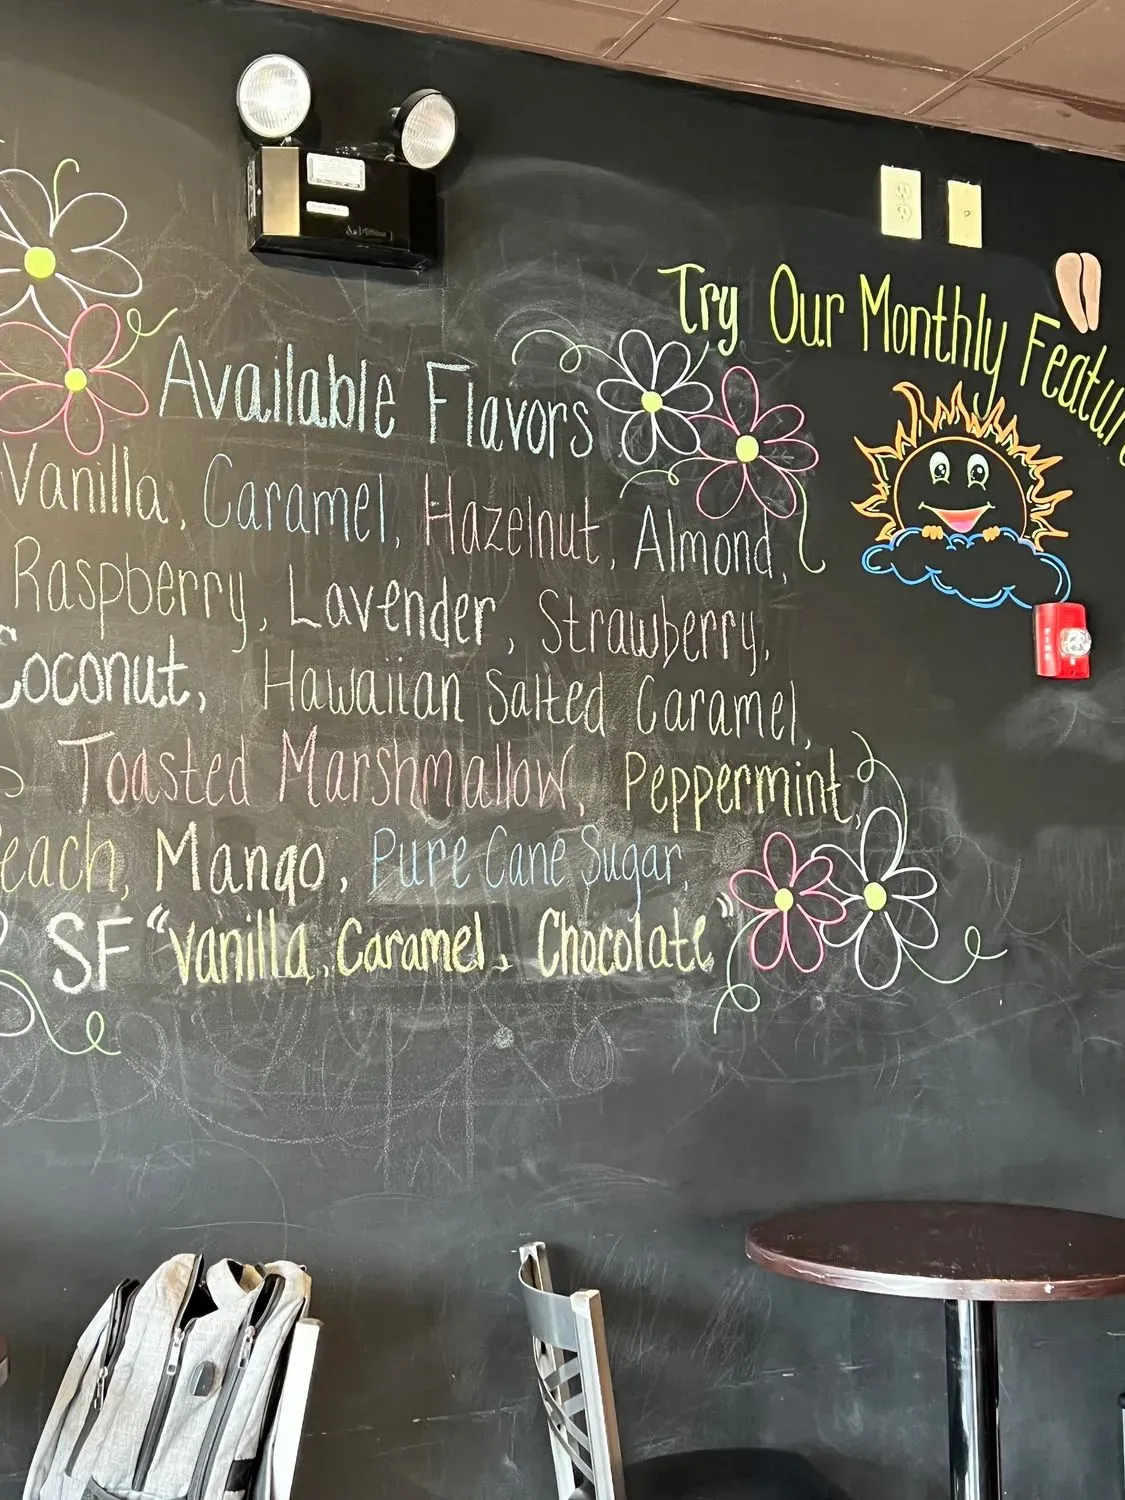 Available Flavors
Vanilla, Caramel, Hazelnut, Almond,
Raspberry, Lavender, Strawberry,
Coconut, Hawaiian Salted Caramel,
Toasted Marshmallow, Peppermint,
each, Mango, Pure Cane Sugar,
SF "Vanilla, Caramel, Chocolate"
Try Our Monthly Featur